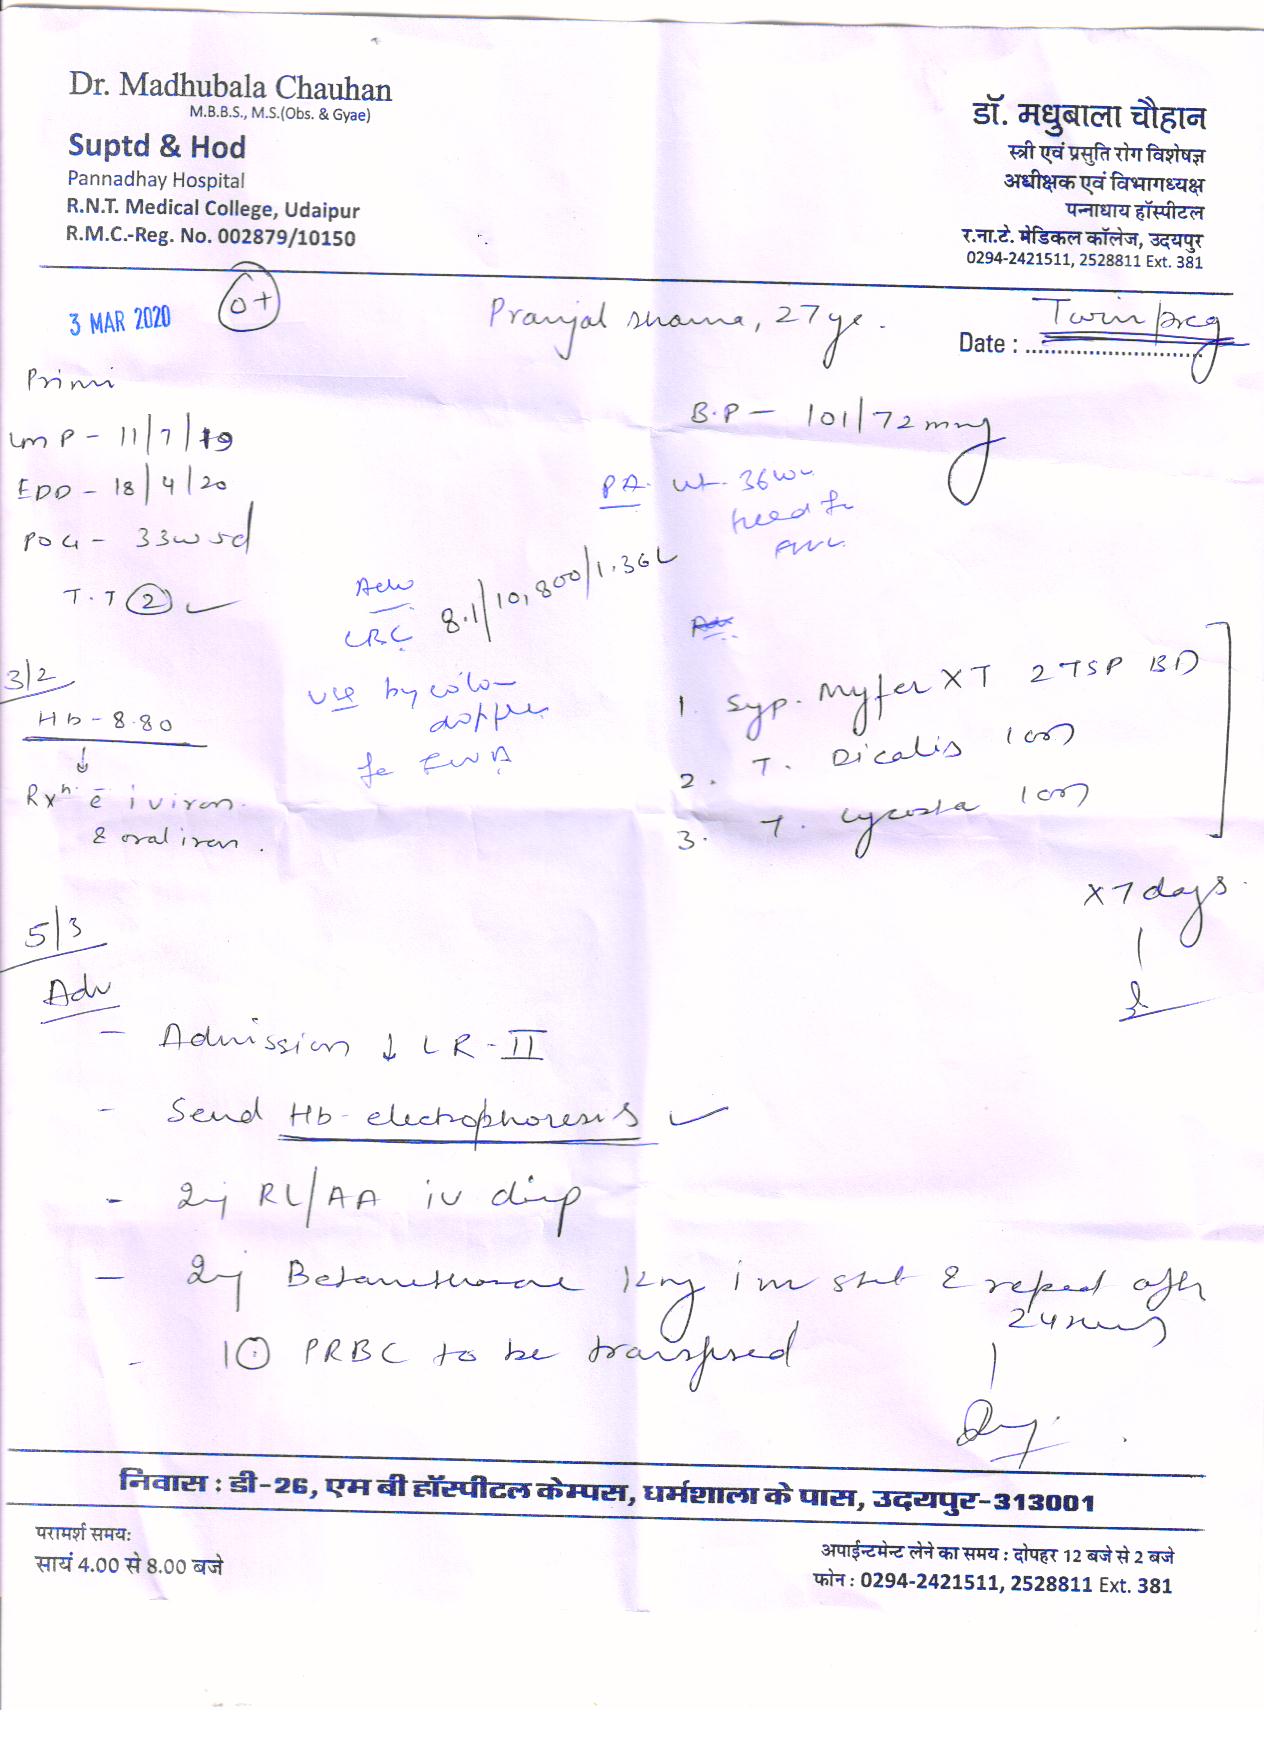 Dr. Madhubala Chauhan
M.B.B.S., M.S.(Obs. & Gyae)
Suptd & Hod
Pannadhay Hospital
R.N.T. Medical College, Udaipur
R.M.C.-Reg. No. 002879/10150
डॉ. मधुबाला चौहान
स्त्री एवं प्रसुति रोग विशेषज्ञ
अधीक्षक एवं विभागध्यक्ष
पन्नाधाय हॉस्पीटल
र.ना.टे. मेडिकल कॉलेज, उदयपुर
0294-2421511, 2528811 Ext. 381
3 MAR 2020
O+
Pranjal sharma, 27 ye.
Twin preg
Date :
Primi
LMP - 11/7/19
EDD - 18/4/20
POG - 33w 5d
T.T 2
B.P - 101/72 mmHg
PA. ut. 36w
Adv
CBC 8.1/10,800/1.36L
USG by colo
doppler
for FWB
3/2
Hb - 8.80
Rxn c iv iron
& oral iron.
1. Syp. Myfer XT 2 TSP BD
2. T. Dicalis 1 OD
3. T. Lycosta 1 OD
x 7 days.
5/3
Adv
- Admission ↓ LR-II
- Send Hb-electrophoresis
- Inj RL/AA iv drip
- Inj Betamethasone 12mg im stat & repeat after
24 hours
- 1 PRBC to be transfused
निवास : डी-26, एम बी हॉस्पीटल केम्पस, धर्मशाला के पास, उदयपुर-313001
परामर्श समय:
सायं 4.00 से 8.00 बजे
अपाईन्टमेन्ट लेने का समय : दोपहर 12 बजे से 2 बजे
फोन : 0294-2421511, 2528811 Ext. 381